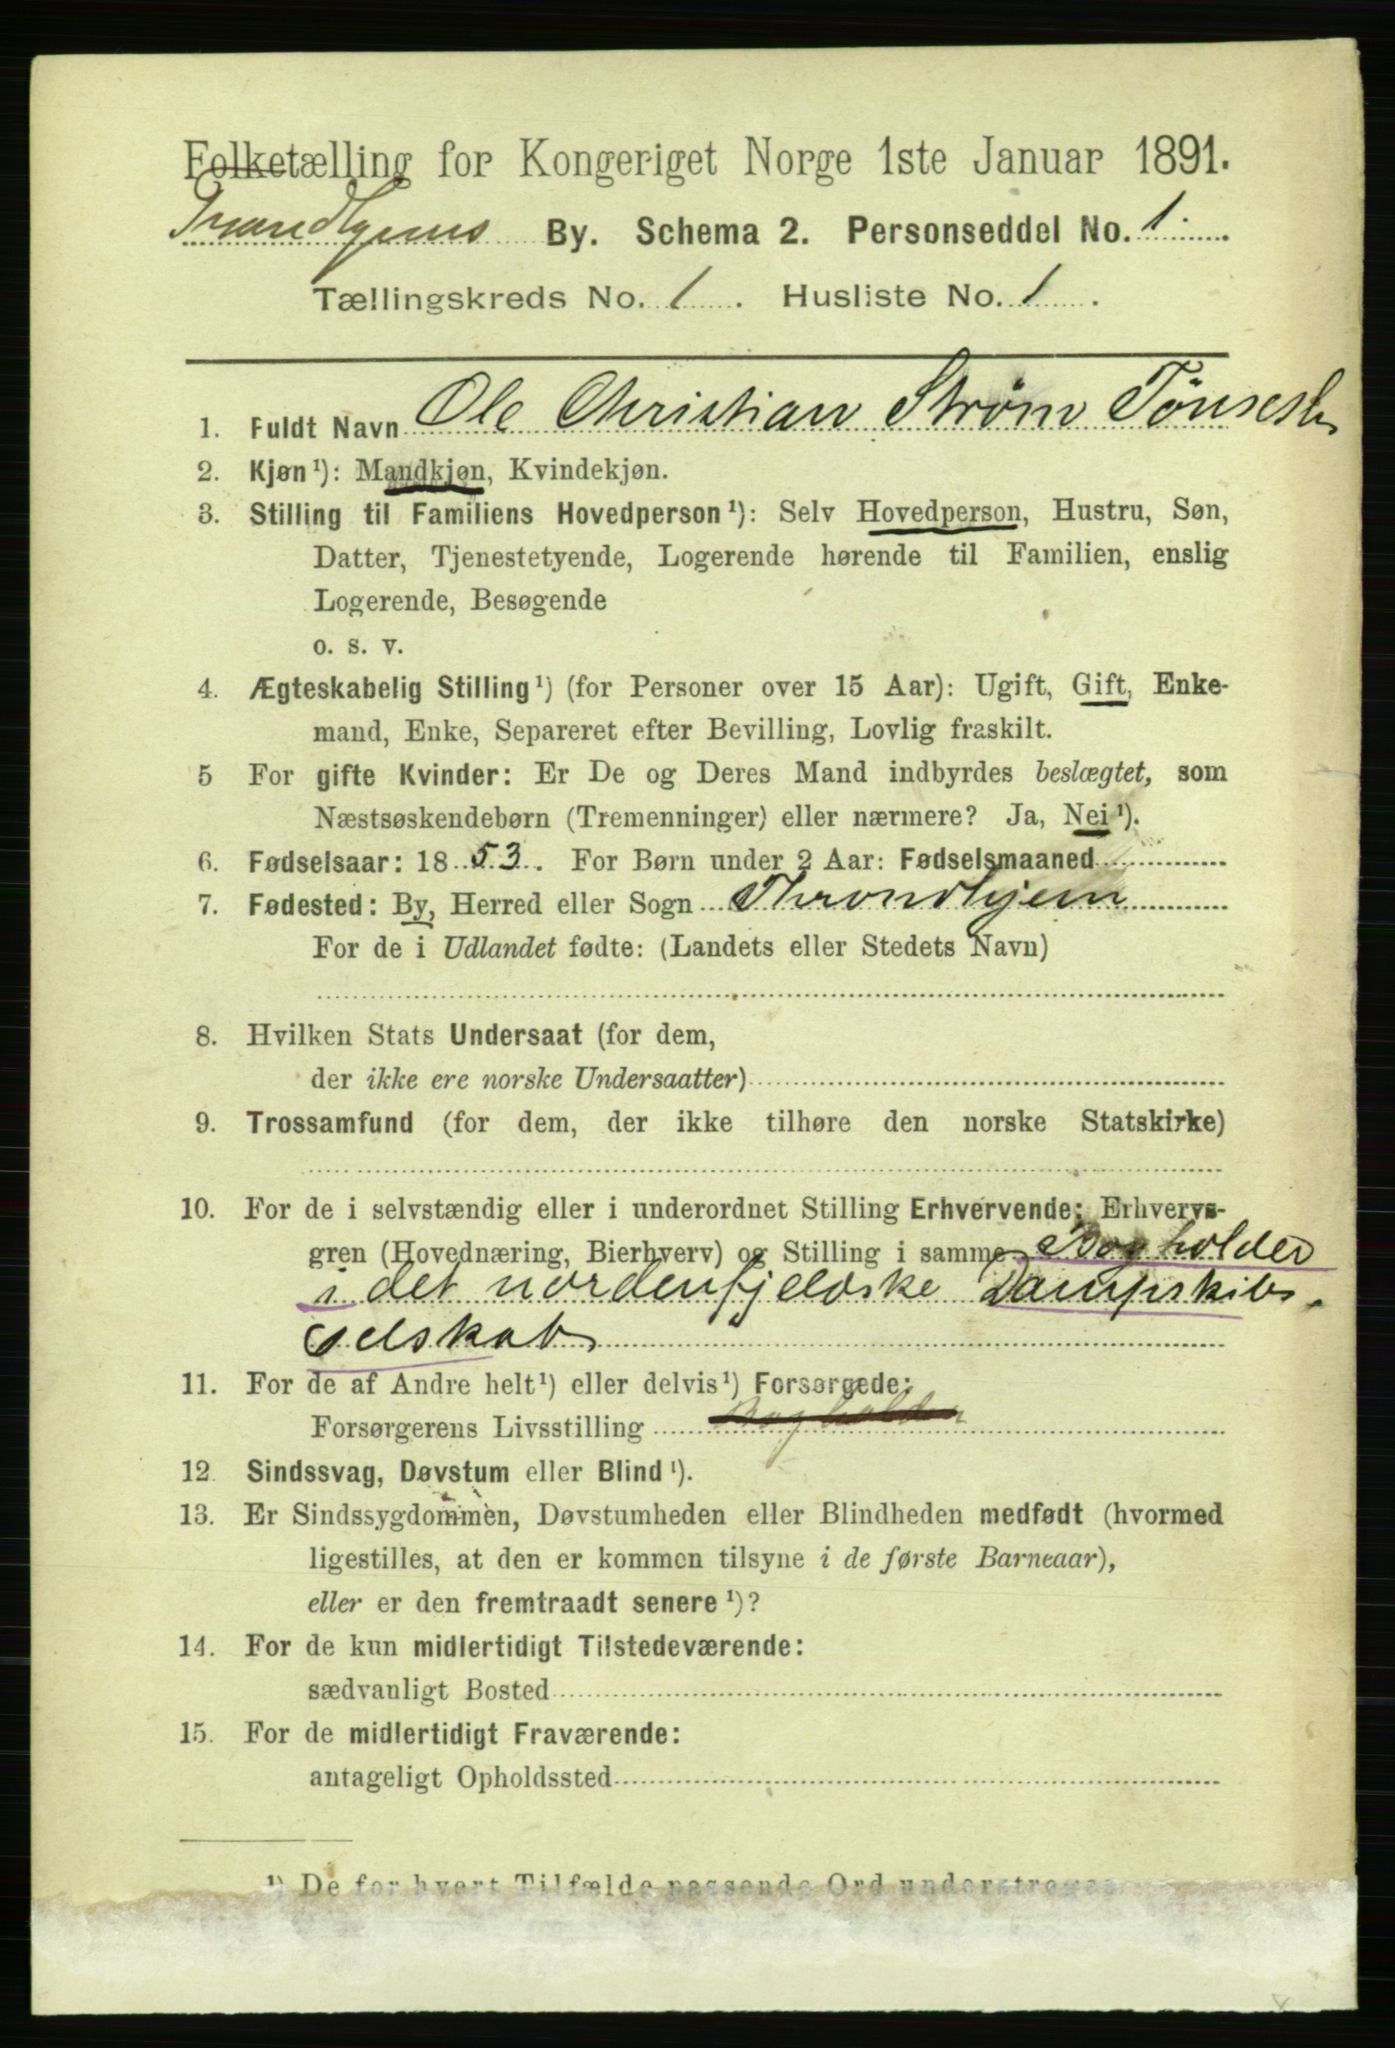 Folketælling for Kongeriget Norge 1ste Januar 1891.
Trondhjems By. Schema 2. Personseddel No. 1.
Tællingskreds No. 1. Husliste No. 1.
1. Fuldt Navn Ole Christian Strøm
2. Kjøn ¹): Mandkjøn, Kvindekjøn.
3. Stilling til Familiens Hovedperson ¹): Selv Hovedperson, Hustru, Søn,
Datter, Tjenestetyende, Logerende hørende til Familien, enslig
Logerende, Besøgende
o. s. v.
4. Ægteskabelig Stilling ¹) (for Personer over 15 Aar): Ugift, Gift, Enke-
mand, Enke, Separeret efter Bevilling, Lovlig fraskilt.
5 For gifte Kvinder: Er De og Deres Mand indbyrdes beslægtet, som
Næstsøskendebørn (Tremenninger) eller nærmere? Ja, Nei ¹).
6. Fødselsaar: 1853. For Børn under 2 Aar: Fødselsmaaned
7. Fødested: By, Herred eller Sogn Throndhjem
For de i Udlandet fødte: (Landets eller Stedets Navn)
8. Hvilken Stats Undersaat (for dem,
der ikke ere norske Undersaatter)
9. Trossamfund (for dem, der ikke tilhøre den norske Statskirke)
10. For de i selvstændig eller i underordnet Stilling Erhvervende: Erhvervs-
gren (Hovednæring, Bierhverv) og Stilling i samme Bogholder
i det nordenfjeldske Dampskibs
selskab
11. For de af Andre helt ¹) eller delvis ¹) Forsørgede:
Forsørgerens Livsstilling Bogholder
12. Sindssvag, Døvstum eller Blind ¹).
13. Er Sindssygdommen, Døvstumheden eller Blindheden medfødt (hvormed
ligestilles, at den er kommen tilsyne i de første Barneaar),
eller er den fremtraadt senere ¹)?
14. For de kun midlertidigt Tilstedeværende:
sædvanligt Bosted
15. For de midlertidigt Fraværende:
antageligt Opholdssted
¹) De for hvert Tilfælde passende Ord understreges